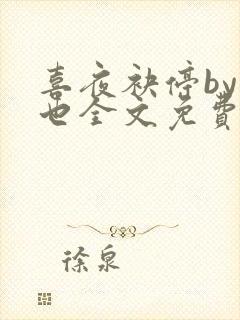 喜夜袂停by
也全文免費
徐泉